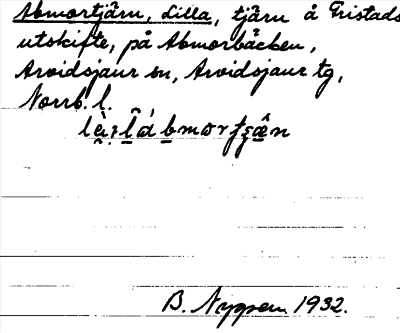 Abmortjärn, lilla, tjärn å Fristads
utskifte, på Abmorbäcken,
Arvidsjaur sn, Arvidsjaur tg,
Norrb. l.
B. Nyppen 1932.